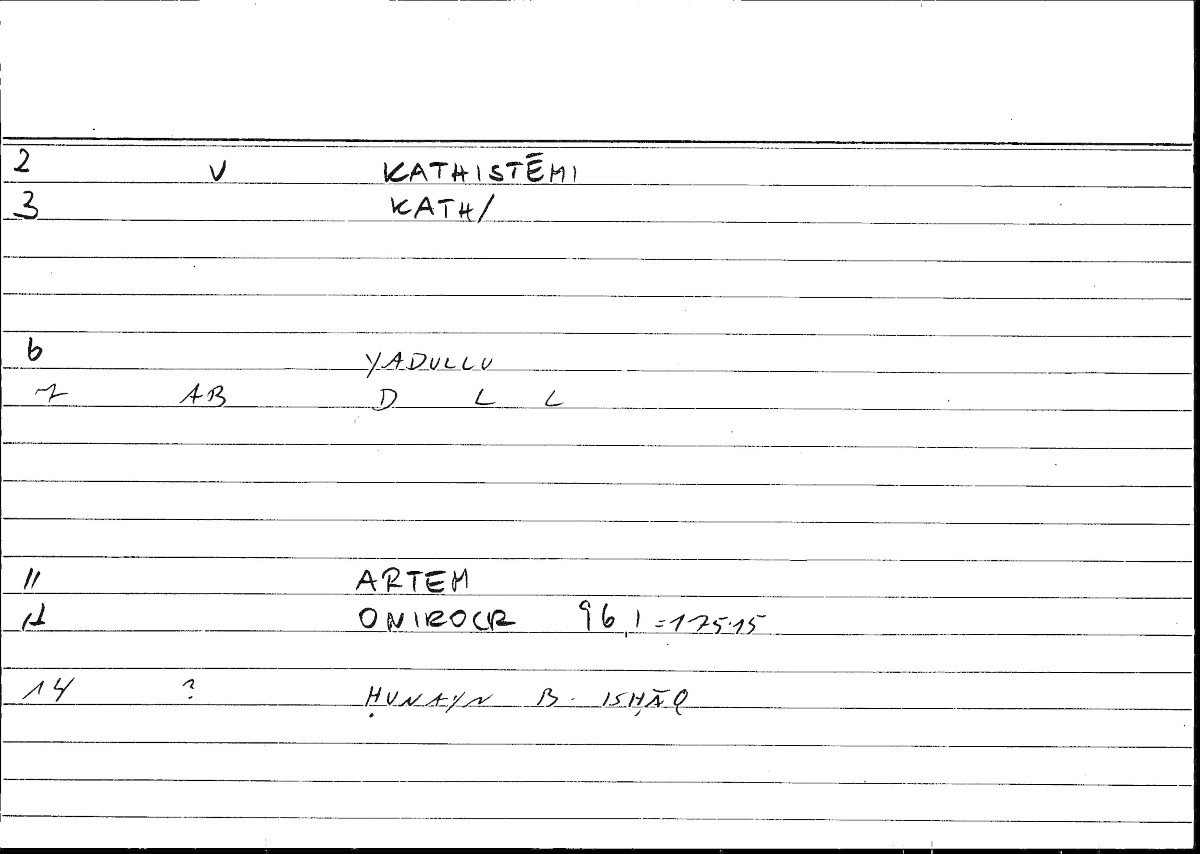 2 V KATHISTĒMI
3 KATH/
6 YADULLU
7 AB D L L
11 ARTEM
12 ONIROCR 96,1=175.15
14 ? ḤUNAYN B. ISḤĀQ